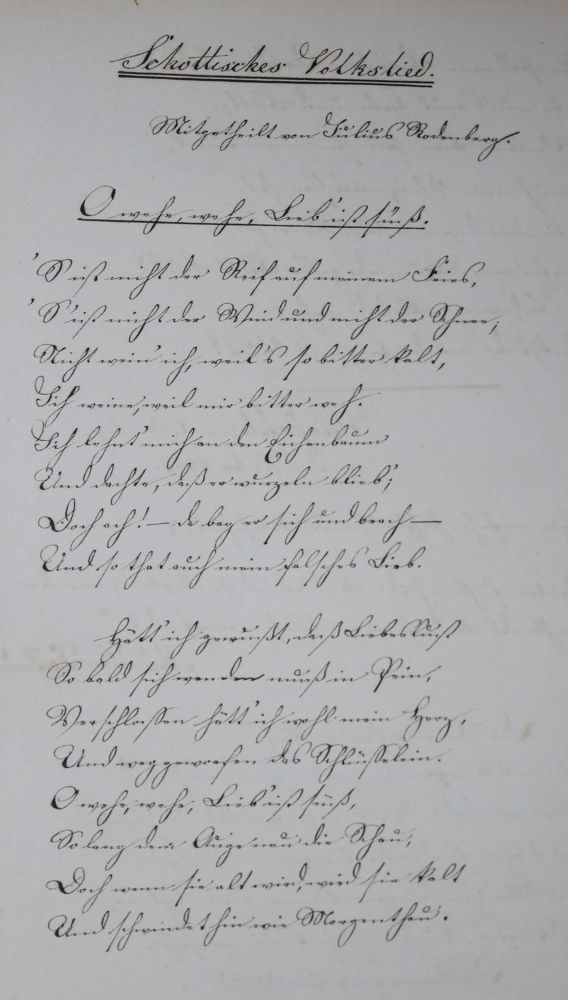 Schottisches Volkslied.
Mitgetheilt von Julius Rodenberg.
O wehe, wehe, Lieb' ist süß.
'S ist nicht der Reif auf meinem Fries,
'S ist nicht der Wind und nicht der Schnee,
Nicht wein' ich, weil's so bitter kalt,
Ich weine, weil mir bitter weh.
Ich lehnt' mich an den Eichenbaum
Und dachte, daß er wurzeln blieb';
Doch ach! – da bog er sich und brach –
Und so that auch mein falsches Lieb.
Hätt' ich gewußt, daß Liebeslust
So bald sich wenden muß in Pein,
Verschlossen hätt' ich wohl mein Herz,
Und weggeworfen das Schlüsselein.
O wehe, wehe, Lieb' ist süß,
So lang dem Auge neu die Schau,
Doch wenn sie alt wird, wird sie kalt
Und schwindet hin wie Morgenthau.